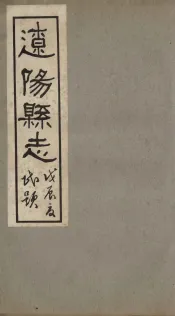 遼陽縣志
戊辰夏